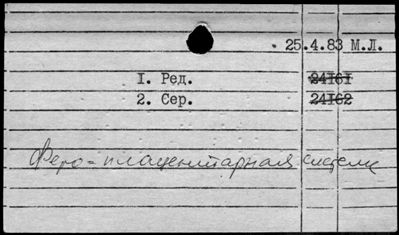 25.4.83 М.Л.
I. Ред. 24I6I
2. Сер. 24I62
Фето-плацентарная система